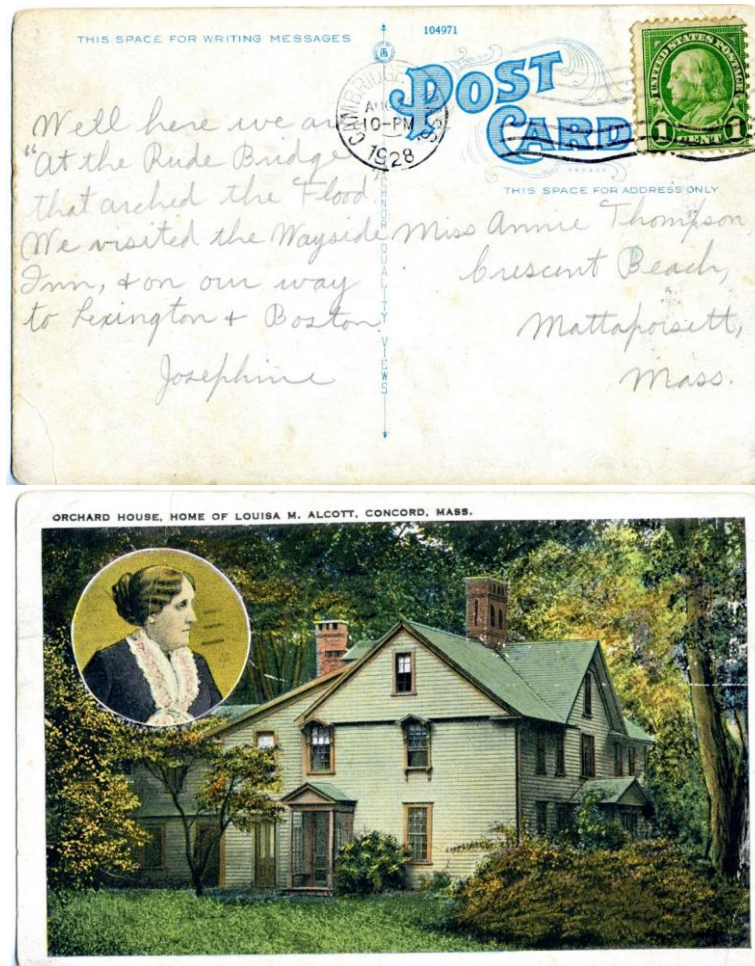 THIS SPACE FOR WRITING MESSAGES
104971
POST
CARD
UNITED STATES POSTAGE
1 CENT 1
CAMBRIDGE
AUG
10-PM
1928
THIS SPACE FOR ADDRESS ONLY
TECHNOR QUALITY VIEWS
Well here we are
"At the Rude Bridge
that arched the Flood
We visited the Wayside
Inn, & on our way
to Lexington & Boston.
Josephine
Miss Annie Thompson,
Crescent Beach,
Mattapoisett,
Mass.
ORCHARD HOUSE, HOME OF LOUISA M. ALCOTT, CONCORD, MASS.